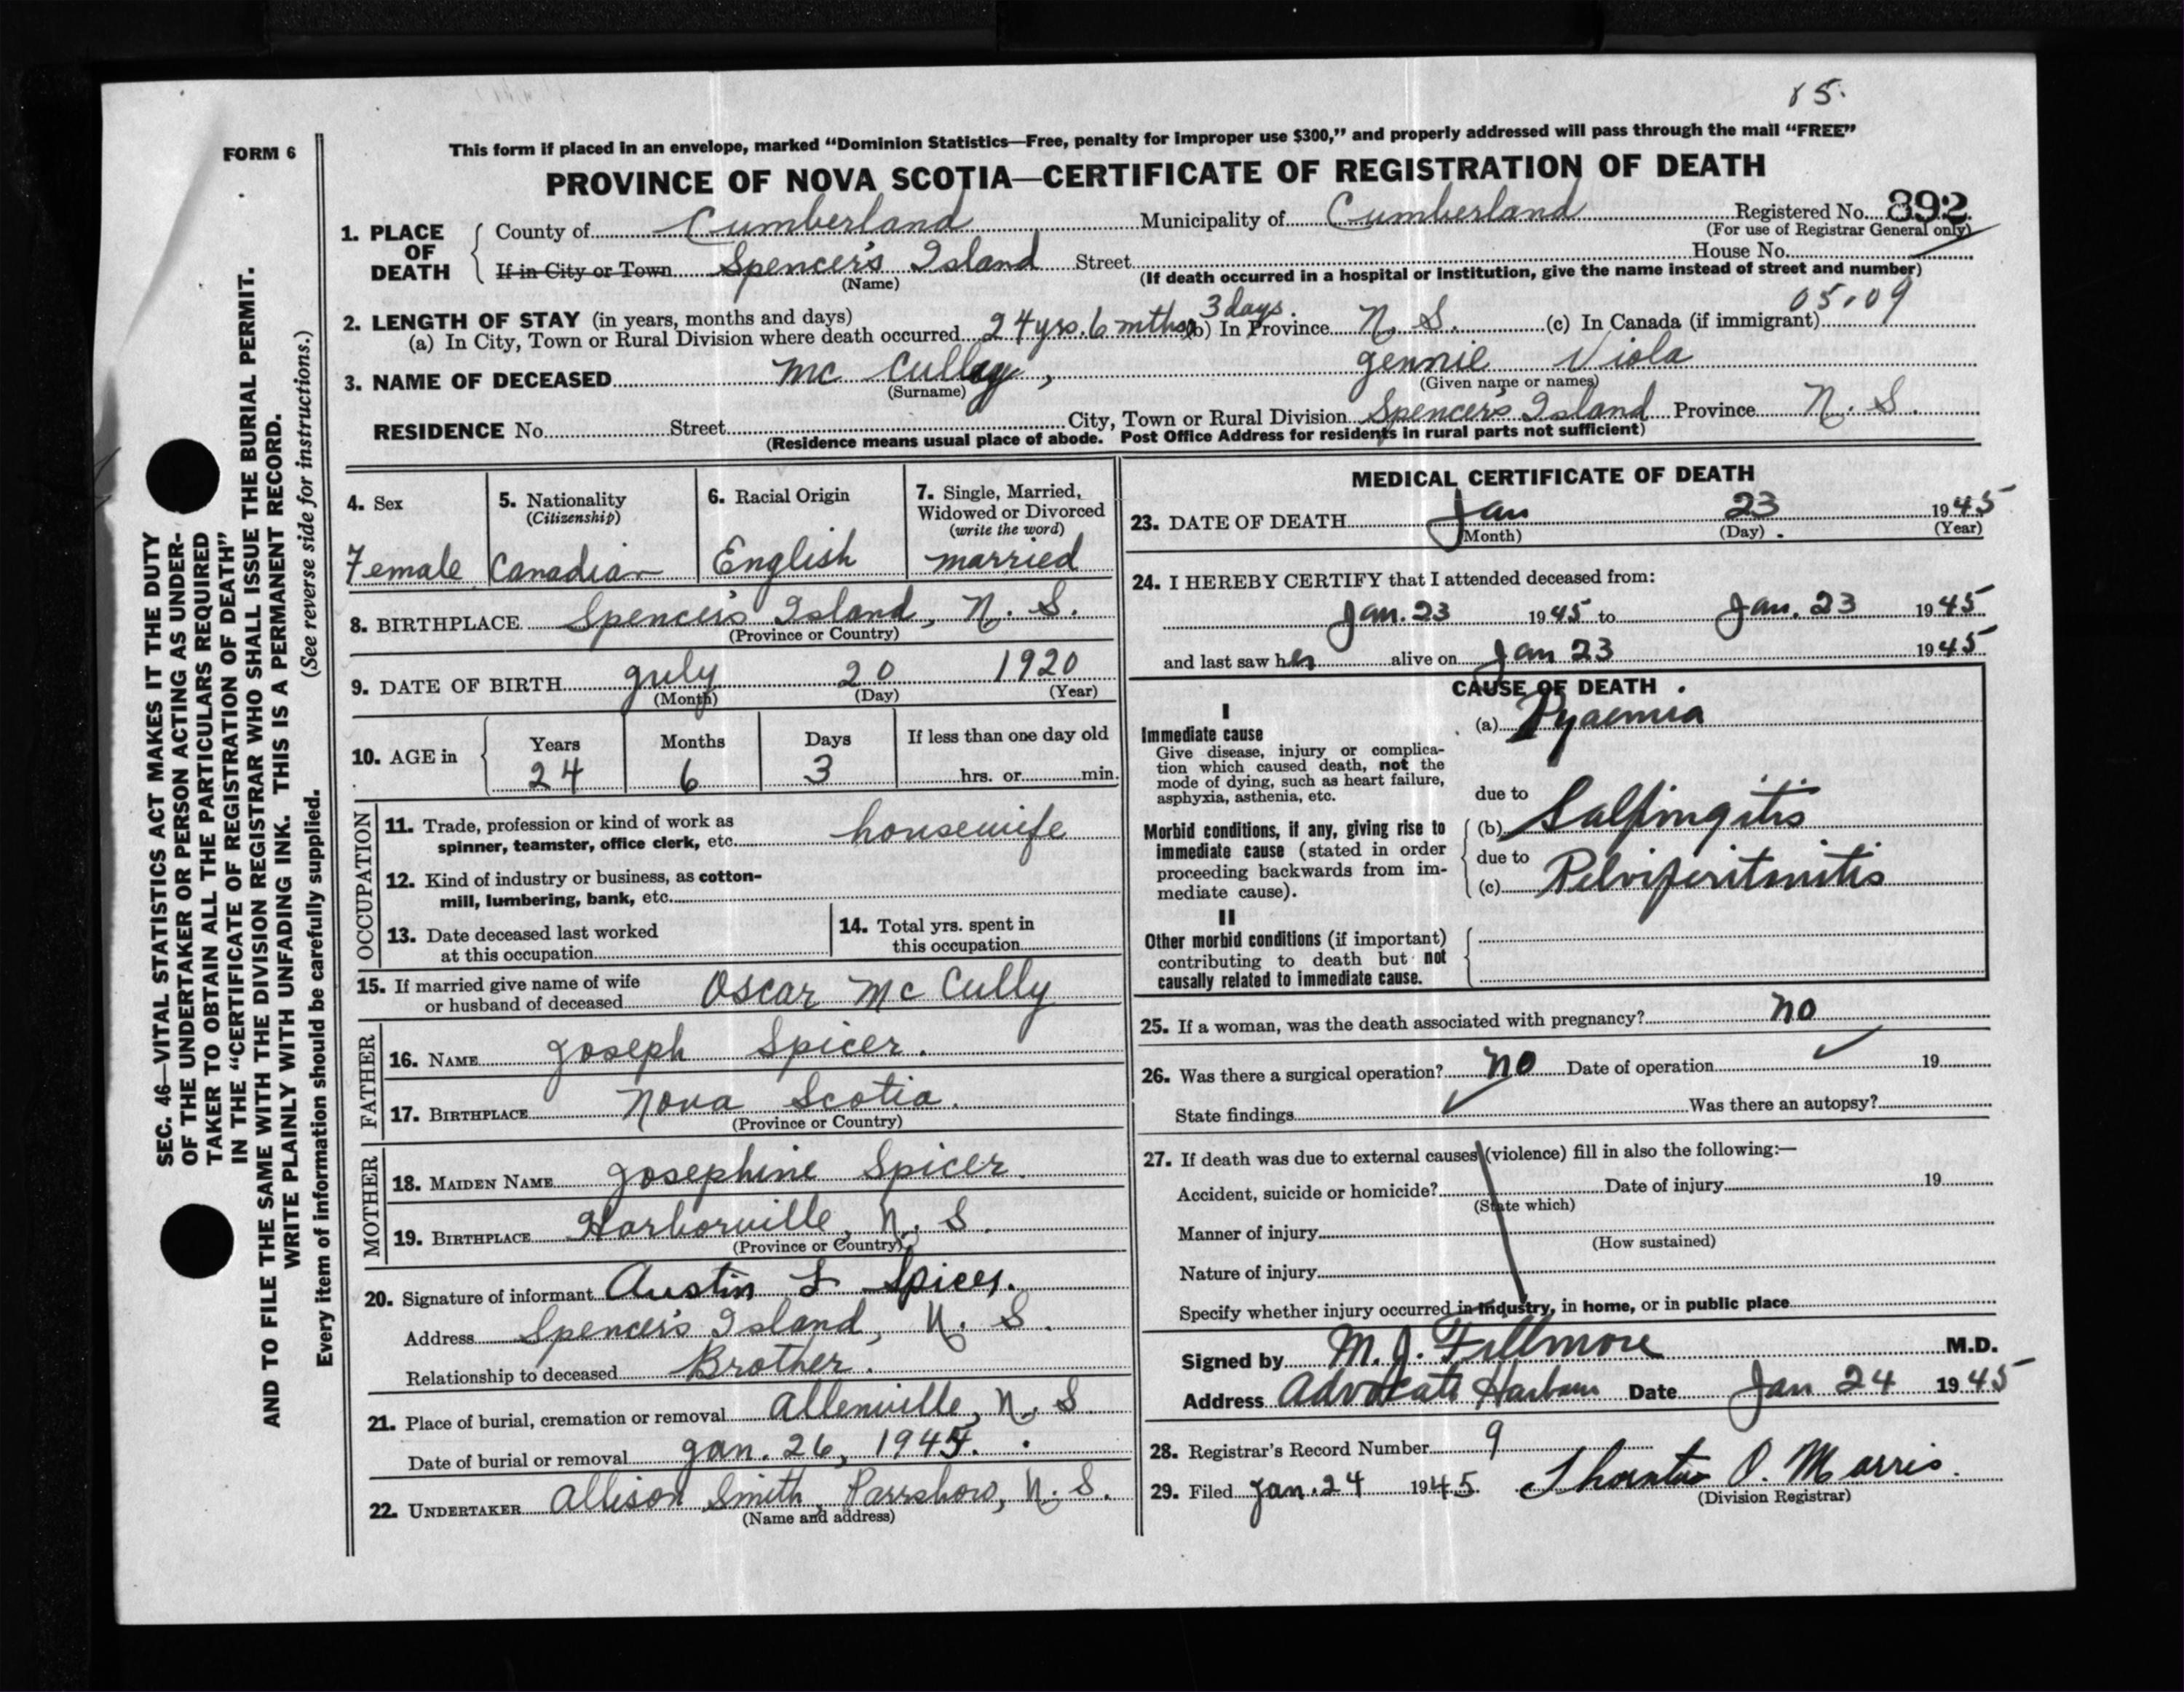 85.
FORM 6
This form if placed in an envelope, marked "Dominion Statistics—Free, penalty for improper use $300," and properly addressed will pass through the mail "FREE"
PROVINCE OF NOVA SCOTIA—CERTIFICATE OF REGISTRATION OF DEATH
1. PLACE OF DEATH County of Cumberland Municipality of Cumberland Registered No. 892
(For use of Registrar General only)
If in City or Town Spencer's Island Street House No.
(Name) (If death occurred in a hospital or institution, give the name instead of street and number)
05.09
2. LENGTH OF STAY (in years, months and days)
(a) In City, Town or Rural Division where death occurred 24 yrs. 6 mths 3 days. (b) In Province N. S. (c) In Canada (if immigrant)
3. NAME OF DECEASED Mc Cully, Jennie Viola
(Surname) (Given name or names)
RESIDENCE No. Street City, Town or Rural Division Spencer's Island Province N. S.
(Residence means usual place of abode. Post Office Address for residents in rural parts not sufficient)
4. Sex Female
5. Nationality (Citizenship) Canadian
6. Racial Origin English
7. Single, Married, Widowed or Divorced (write the word) married
8. BIRTHPLACE Spencer's Island, N. S.
(Province or Country)
9. DATE OF BIRTH July 20 1920
(Month) (Day) (Year)
10. AGE in Years Months Days If less than one day old
24 6 3 hrs. or min.
OCCUPATION
11. Trade, profession or kind of work as
spinner, teamster, office clerk, etc. housewife
12. Kind of industry or business, as cotton-
mill, lumbering, bank, etc.
13. Date deceased last worked
at this occupation
14. Total yrs. spent in
this occupation
15. If married give name of wife
or husband of deceased Oscar Mc Cully
FATHER
16. NAME Joseph Spicer.
17. BIRTHPLACE Nova Scotia.
(Province or Country)
MOTHER
18. MAIDEN NAME Josephine Spicer.
19. BIRTHPLACE Harborville, N. S.
(Province or Country)
20. Signature of informant Austin L Spicer.
Address Spencer's Island, N. S.
Relationship to deceased Brother.
21. Place of burial, cremation or removal Allenville, N. S
Date of burial or removal Jan. 26, 1945.
22. UNDERTAKER Allison Smith, Parrsboro, N. S.
(Name and address)
MEDICAL CERTIFICATE OF DEATH
23. DATE OF DEATH Jan 23 1945
(Month) (Day) (Year)
24. I HEREBY CERTIFY that I attended deceased from:
Jan. 23 1945 to Jan. 23 1945
and last saw her alive on Jan 23 1945
CAUSE OF DEATH
I
Immediate cause
Give disease, injury or complica-
tion which caused death, not the
mode of dying, such as heart failure,
asphyxia, asthenia, etc.
(a) Pyaemia
due to
Morbid conditions, if any, giving rise to
immediate cause (stated in order
proceeding backwards from im-
mediate cause).
(b) Salpingitis
due to
(c) Pelviperitonitis
II
Other morbid conditions (if important)
contributing to death but not
causally related to immediate cause.
25. If a woman, was the death associated with pregnancy? no
26. Was there a surgical operation? no Date of operation 19
State findings Was there an autopsy?
27. If death was due to external causes (violence) fill in also the following:—
Accident, suicide or homicide? Date of injury 19
(State which)
Manner of injury
(How sustained)
Nature of injury
Specify whether injury occurred in industry, in home, or in public place
Signed by M. J. Fillmore M.D.
Address Advocate Harbour Date Jan 24 1945
28. Registrar's Record Number 9
29. Filed Jan. 24 1945. Thornton O. Morris.
(Division Registrar)
SEC. 46—VITAL STATISTICS ACT MAKES IT THE DUTY
OF THE UNDERTAKER OR PERSON ACTING AS UNDER-
TAKER TO OBTAIN ALL THE PARTICULARS REQUIRED
IN THE "CERTIFICATE OF REGISTRATION OF DEATH"
AND TO FILE THE SAME WITH THE DIVISION REGISTRAR WHO SHALL ISSUE THE BURIAL PERMIT.
WRITE PLAINLY WITH UNFADING INK. THIS IS A PERMANENT RECORD.
Every item of information should be carefully supplied. (See reverse side for instructions.)